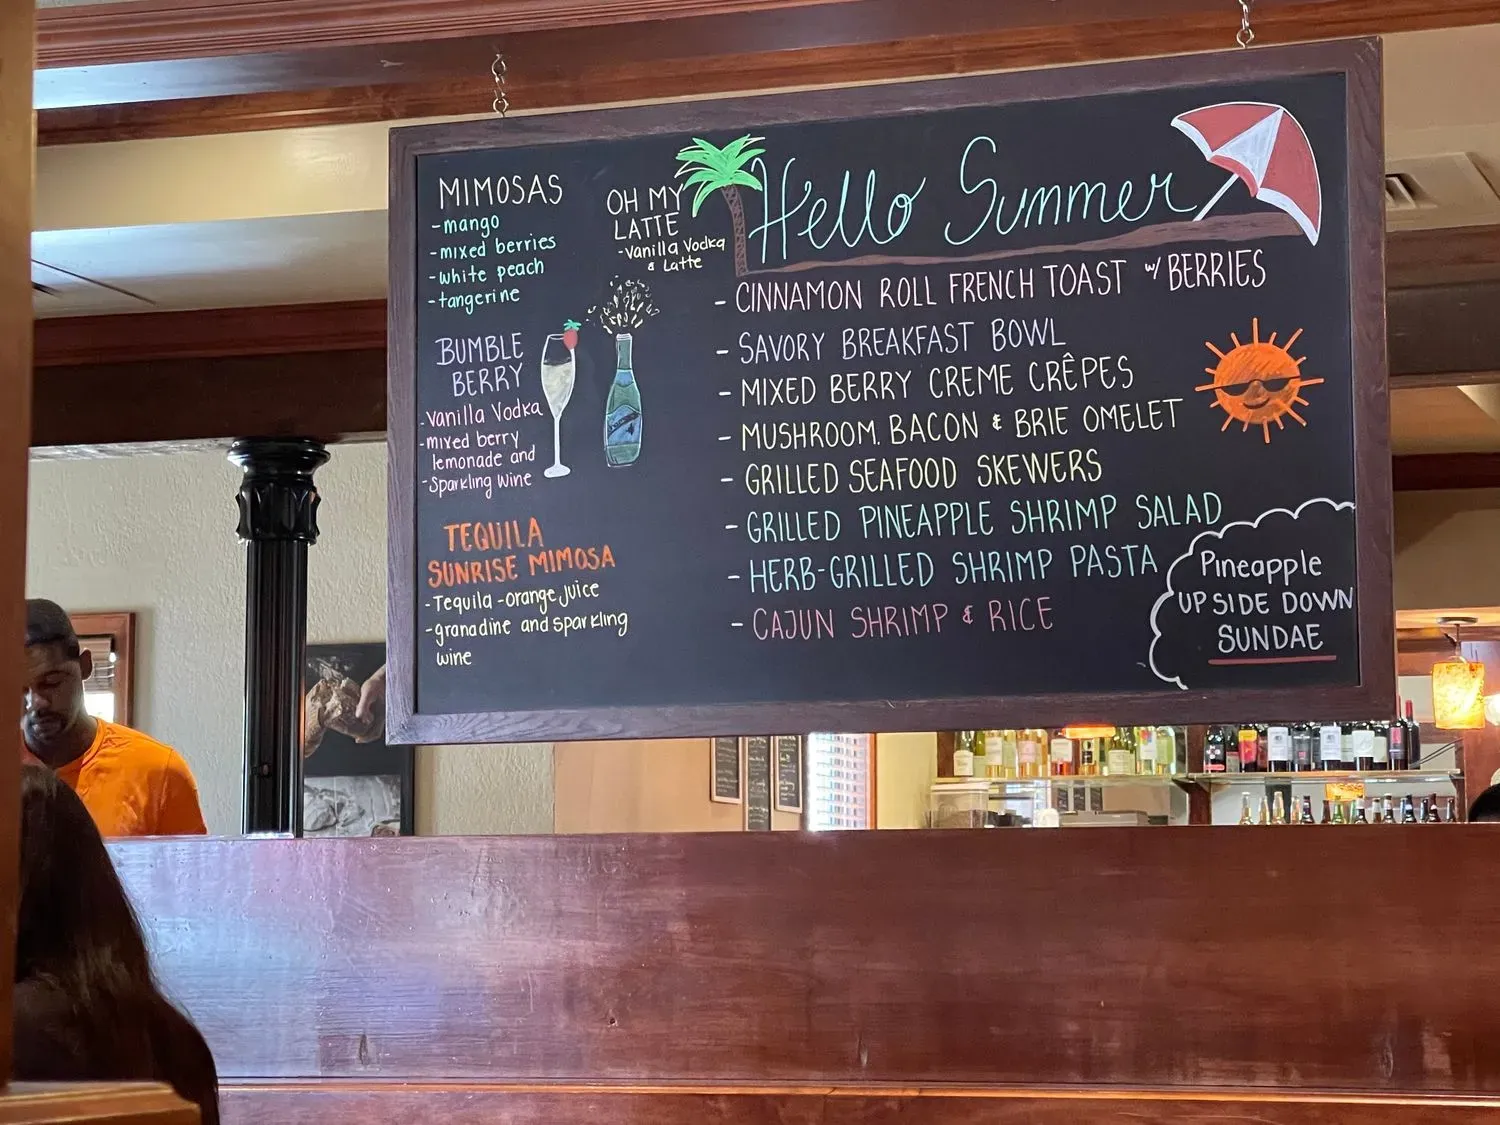 MIMOSAS
-mango
-mixed berries
-white peach
-tangerine
OH MY
LATTE
-Vanilla Vodka
& Latte
BUMBLE
BERRY
-Vanilla Vodka
-mixed berry
lemonade and
-Sparkling wine
TEQUILA
SUNRISE MIMOSA
-Tequila -orange juice
-granadine and sparkling
wine
Hello Summer
- CINNAMON ROLL FRENCH TOAST w/ BERRIES
- SAVORY BREAKFAST BOWL
- MIXED BERRY CREME CRÊPES
- MUSHROOM, BACON & BRIE OMELET
- GRILLED SEAFOOD SKEWERS
- GRILLED PINEAPPLE SHRIMP SALAD
- HERB-GRILLED SHRIMP PASTA
- CAJUN SHRIMP & RICE
Pineapple
UPSIDE DOWN
SUNDAE